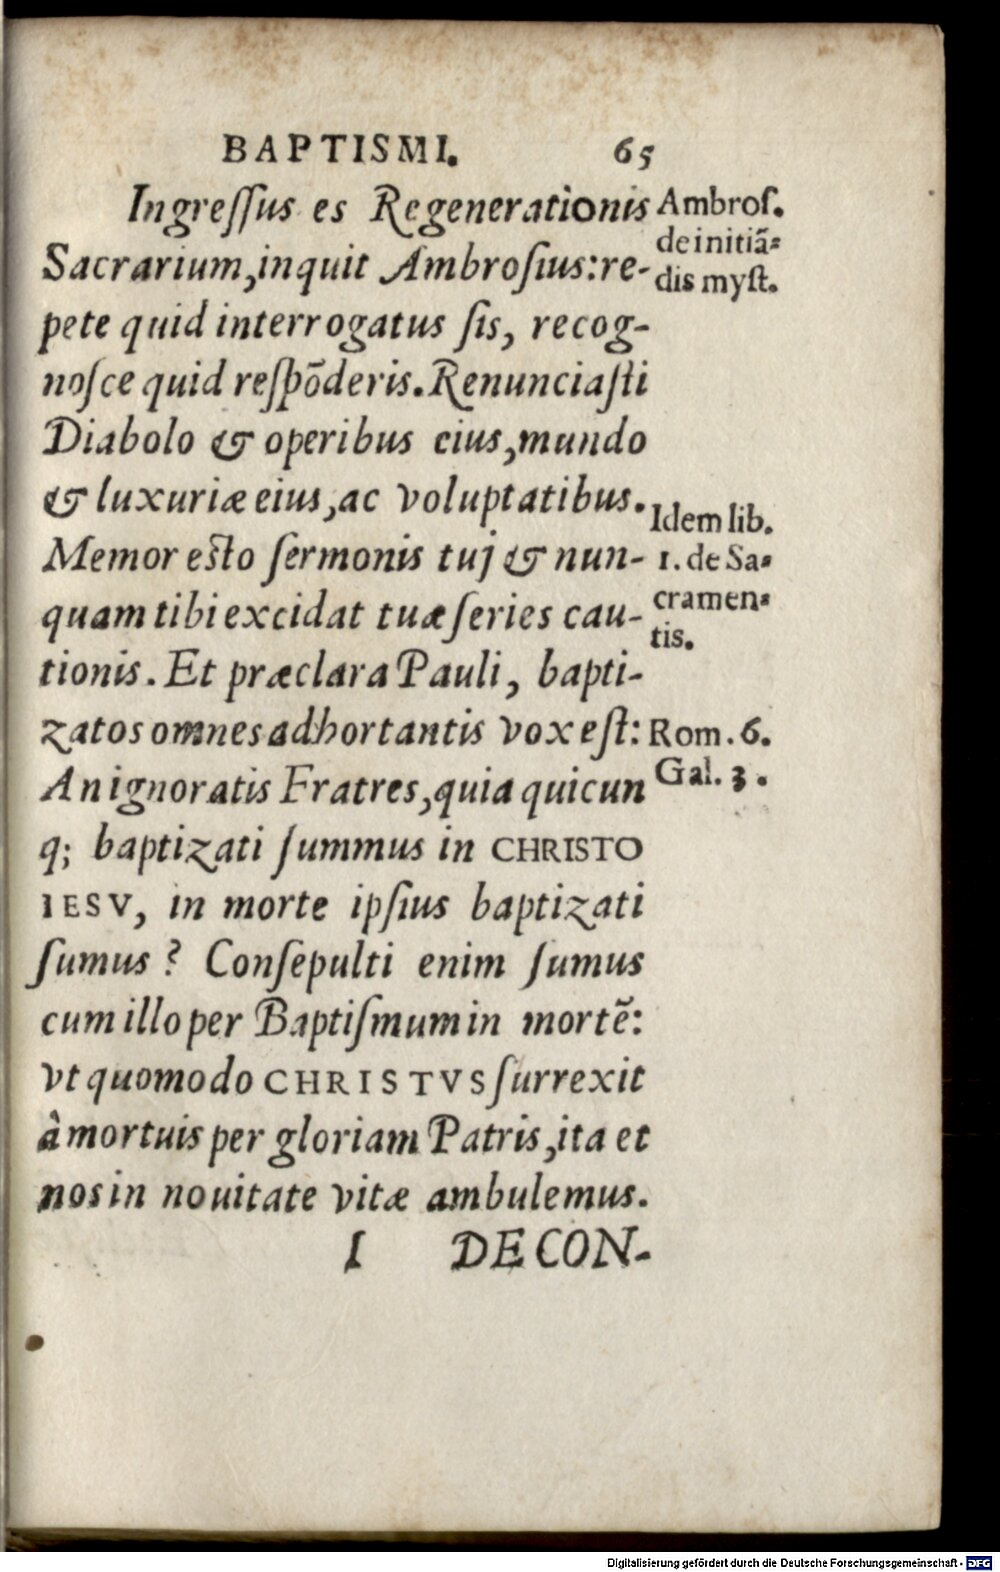 BAPTISMI. 65
Ingreſſus es Regenerationis
Sacrarium, inquit Ambroſius: re-
pete quid interrogatus ſis, recog-
noſce quid reſpõderis. Renunciaſti
Diabolo & operibus eius, mundo
& luxuriæ eius, ac voluptatibus.
Memor eſto ſermonis tuj & nun-
quam tibi excidat tuæ ſeries cau-
tionis. Et præclara Pauli, bapti-
zatos omnes adhortantis vox eſt:
An ignoratis Fratres, quia quicun
q; baptizati ſummus in CHRISTO
IESV, in morte ipſius baptizati
ſumus? Conſepulti enim ſumus
cum illo per Baptiſmum in mortẽ:
vt quomodo CHRISTVS ſurrexit
â mortuis per gloriam Patris, ita et
nos in nouitate vitæ ambulemus.
I DE CON-
Ambroſ.
de initiã-
dis myſt.
Idem lib.
1. de Sa-
cramen-
tis.
Rom. 6.
Gal. 3.
Digitalisierung gefördert durch die Deutsche Forschungsgemeinschaft - DFG